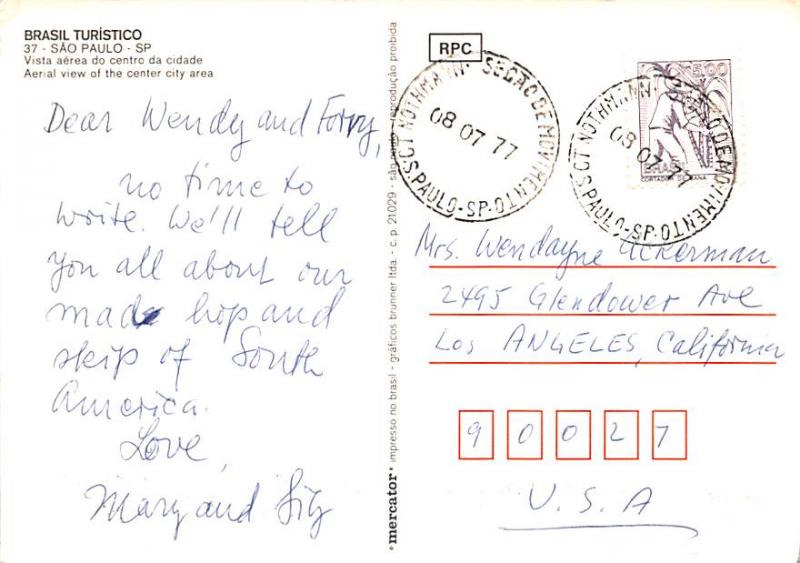 BRASIL TURÍSTICO
37 - SÃO PAULO - SP
Vista aérea do centro da cidade
Aerial view of the center city area
Dear Wendy and Forry,
no time to
write. We'll tell
you all about our
made hop and
skip of South
America.
Love,
Mary and
*mercator* impresso no brasil - gráficos brunner ltda. - c. p. 21029 - são paulo - reprodução proibida
RPC
CT NOTHMANN - SECÃO DE MOVIMENTO
08 07 77
S. PAULO - SP
5,00
BRASIL
CT NOTHMANN - SECÃO DE MOVIMENTO
08 07 77
S. PAULO - SP
Mrs. Wendayne Ackerman
2495 Glendower Ave
Los ANGELES, California
90027
U.S.A